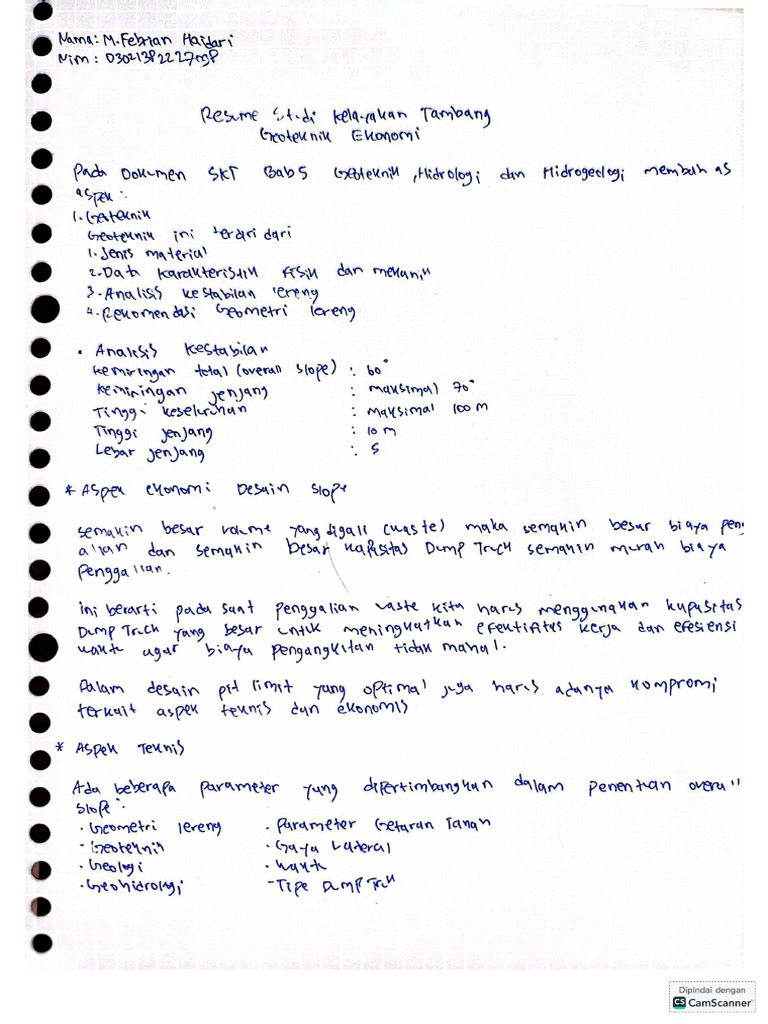 Nama: M. Febrian Haidari
Nim :
Resume Studi Kelayakan Tambang
Geoteknik Ekonomi
Pada Dokumen SKT Bab 5 Geoteknik, Hidrologi dan Hidrogeologi membahas
aspek :
1. Geoteknik
Geoteknik ini terdiri dari
1. Jenis material
2. Data karakteristik fisik dan mekanik
3. Analisis kestabilan lereng
4. Rekomendasi Geometri lereng
• Analisis kestabilan
kemiringan total (overall slope) : 60°
Kemiringan jenjang : maksimal 70°
Tinggi keseluruhan : maksimal 100 m
Tinggi jenjang : 10 m
Lebar jenjang : 5
* Aspek ekonomi Desain slope
semakin besar volume yang digali (waste) maka semakin besar biaya peng
alian dan semakin besar kapasitas Dump Truck semakin murah biaya
Penggalian.
ini berarti pada saat penggalian waste kita harus menggunakan kapasitas
Dump Truck yang besar untuk meningkatkan efektifitas kerja dan efesiensi
waktu agar biaya pengangkutan tidak mahal.
Dalam desain pit limit yang optimal juga harus adanya kompromi
terkait aspek teknis dan ekonomis
* Aspek Teknis
Ada beberapa parameter yang dipertimbangkan dalam penentuan overall
slope :
• Geometri lereng • Parameter Getaran Tanah
- Geoteknik • Gaya Lateral
• Geologi • Waktu
• Geohidrologi - Tipe Dump Truck
Dipindai dengan
CS CamScanner